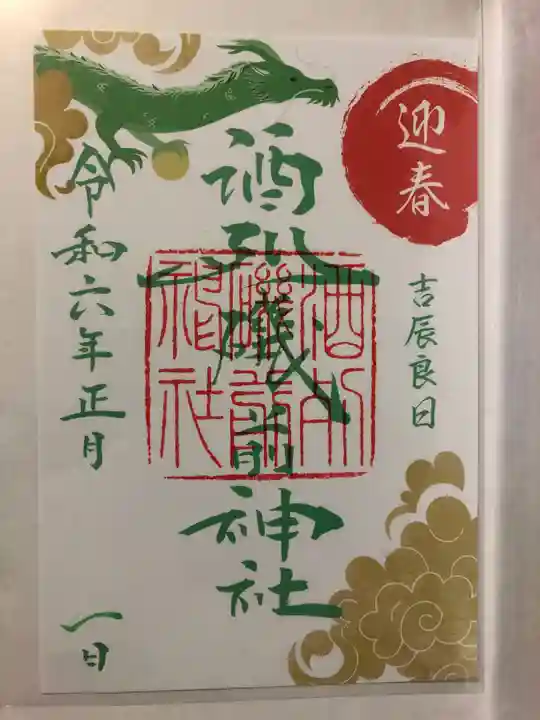 迎春
吉辰良日
酒列磯前神社
酒列
磯前
神社
令和六年正月
一日